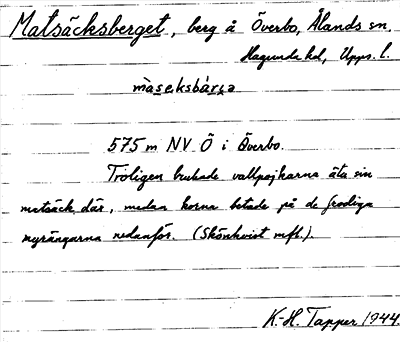 Matsäcksberget, berg å Överbo, Ålands sn,
Hagunda hd, Upps. l.
màseksbárja
575 m NV Ö i Överbo.
Troligen brukade vallpojkarna äta sin
matsäck där, medan korna betade på de frodiga
myrängarna nedanför. (Skönkvist mfl.).
K.-H. Tapper 1944.